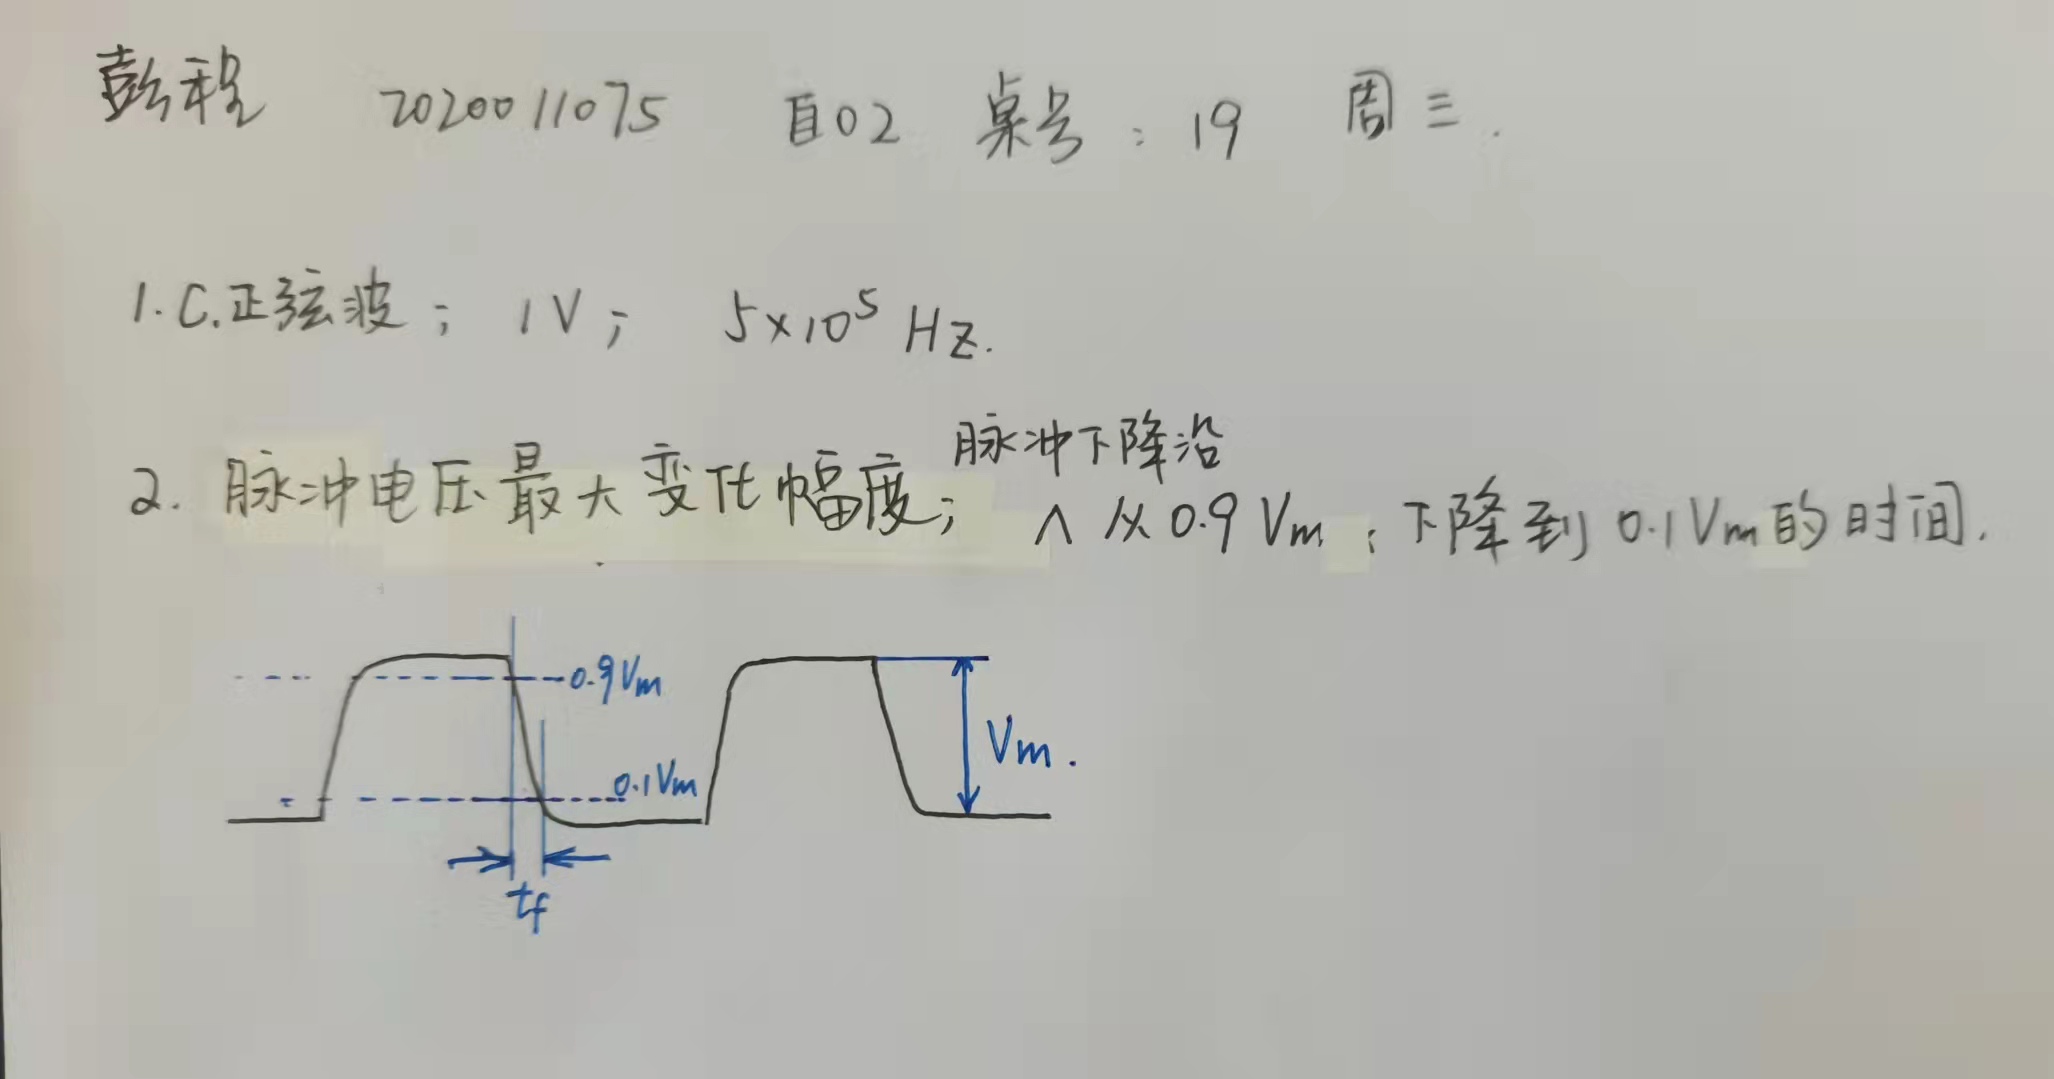 彭程 2020011075 自02 桌号:19 周三.
1.C.正弦波; 1V; 5×10⁵ Hz.
脉冲下降沿
2. 脉冲电压最大变化幅度; ∧ 从0.9Vm, 下降到0.1Vm的时间.
0.9Vm
Vm.
0.1Vm
tf